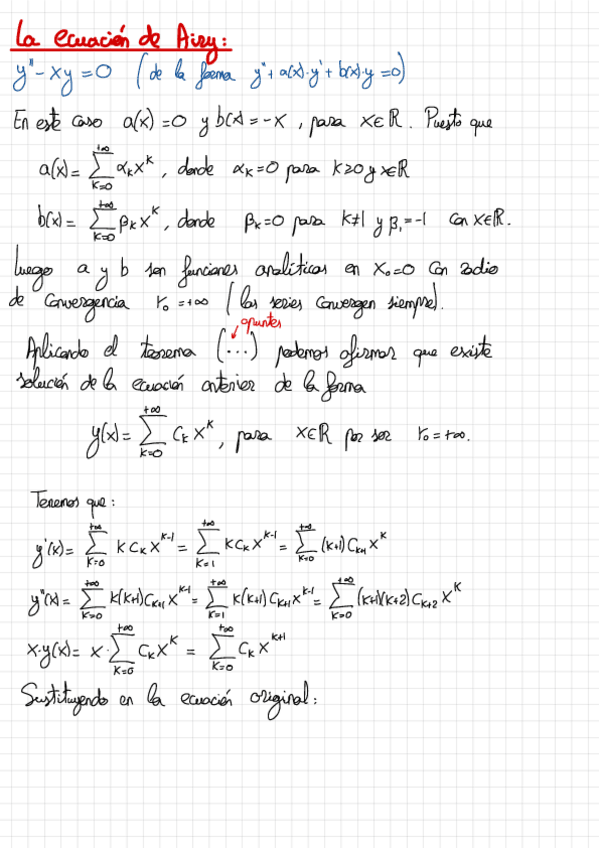 La ecuación de Airy:
y'' - xy = 0 (de la forma y'' + a(x)·y' + b(x)·y = 0)
En este caso a(x) = 0 y b(x) = -x, para x∈ℝ. Puesto que
a(x) = ∑_{k=0}^{+∞} α_k x^k, donde α_k = 0 para k≥0 y x∈ℝ
b(x) = ∑_{k=0}^{+∞} β_k x^k, donde β_k = 0 para k≠1 y β_1 = -1 con x∈ℝ.
Luego a y b son funciones analíticas en x_0 = 0 con radio
de convergencia r_0 = +∞ (las series convergen siempre).
apuntes
Aplicando el teorema (...) podemos afirmar que existe
solución de la ecuación anterior de la forma
y(x) = ∑_{k=0}^{+∞} C_k x^k, para x∈ℝ por ser r_0 = +∞.
Tenemos que:
y'(x) = ∑_{k=0}^{+∞} k C_k x^{k-1} = ∑_{k=1}^{+∞} k C_k x^{k-1} = ∑_{k=0}^{+∞} (k+1) C_{k+1} x^k
y''(x) = ∑_{k=0}^{+∞} k(k+1) C_{k+1} x^{k-1} = ∑_{k=1}^{+∞} k(k+1) C_{k+1} x^{k-1} = ∑_{k=0}^{+∞} (k+1)(k+2) C_{k+2} x^k
x·y(x) = x·∑_{k=0}^{+∞} C_k x^k = ∑_{k=0}^{+∞} C_k x^{k+1}
Sustituyendo en la ecuación original: